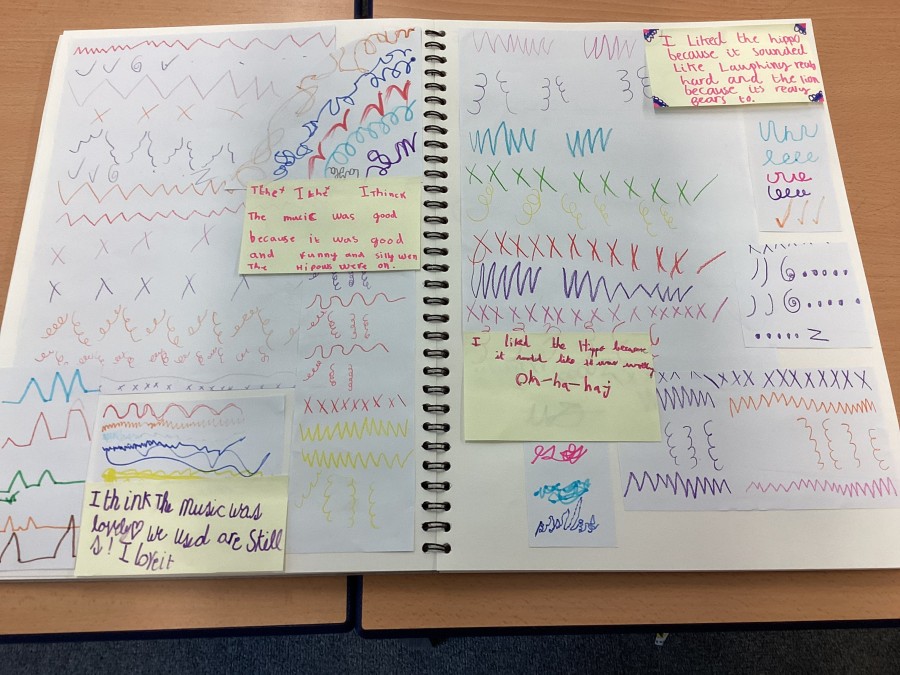 I Liked the hippo
because it sounded
like Laughing realy
hard and the lion
because its realy
gears to.
I think
The music was good
because it was good
and funny and silly wen
The Hipows were on.
I liked the Hippo because
it like it was
Oh-ha-haj
I think The music was
lovely we used are skell
s! I love it